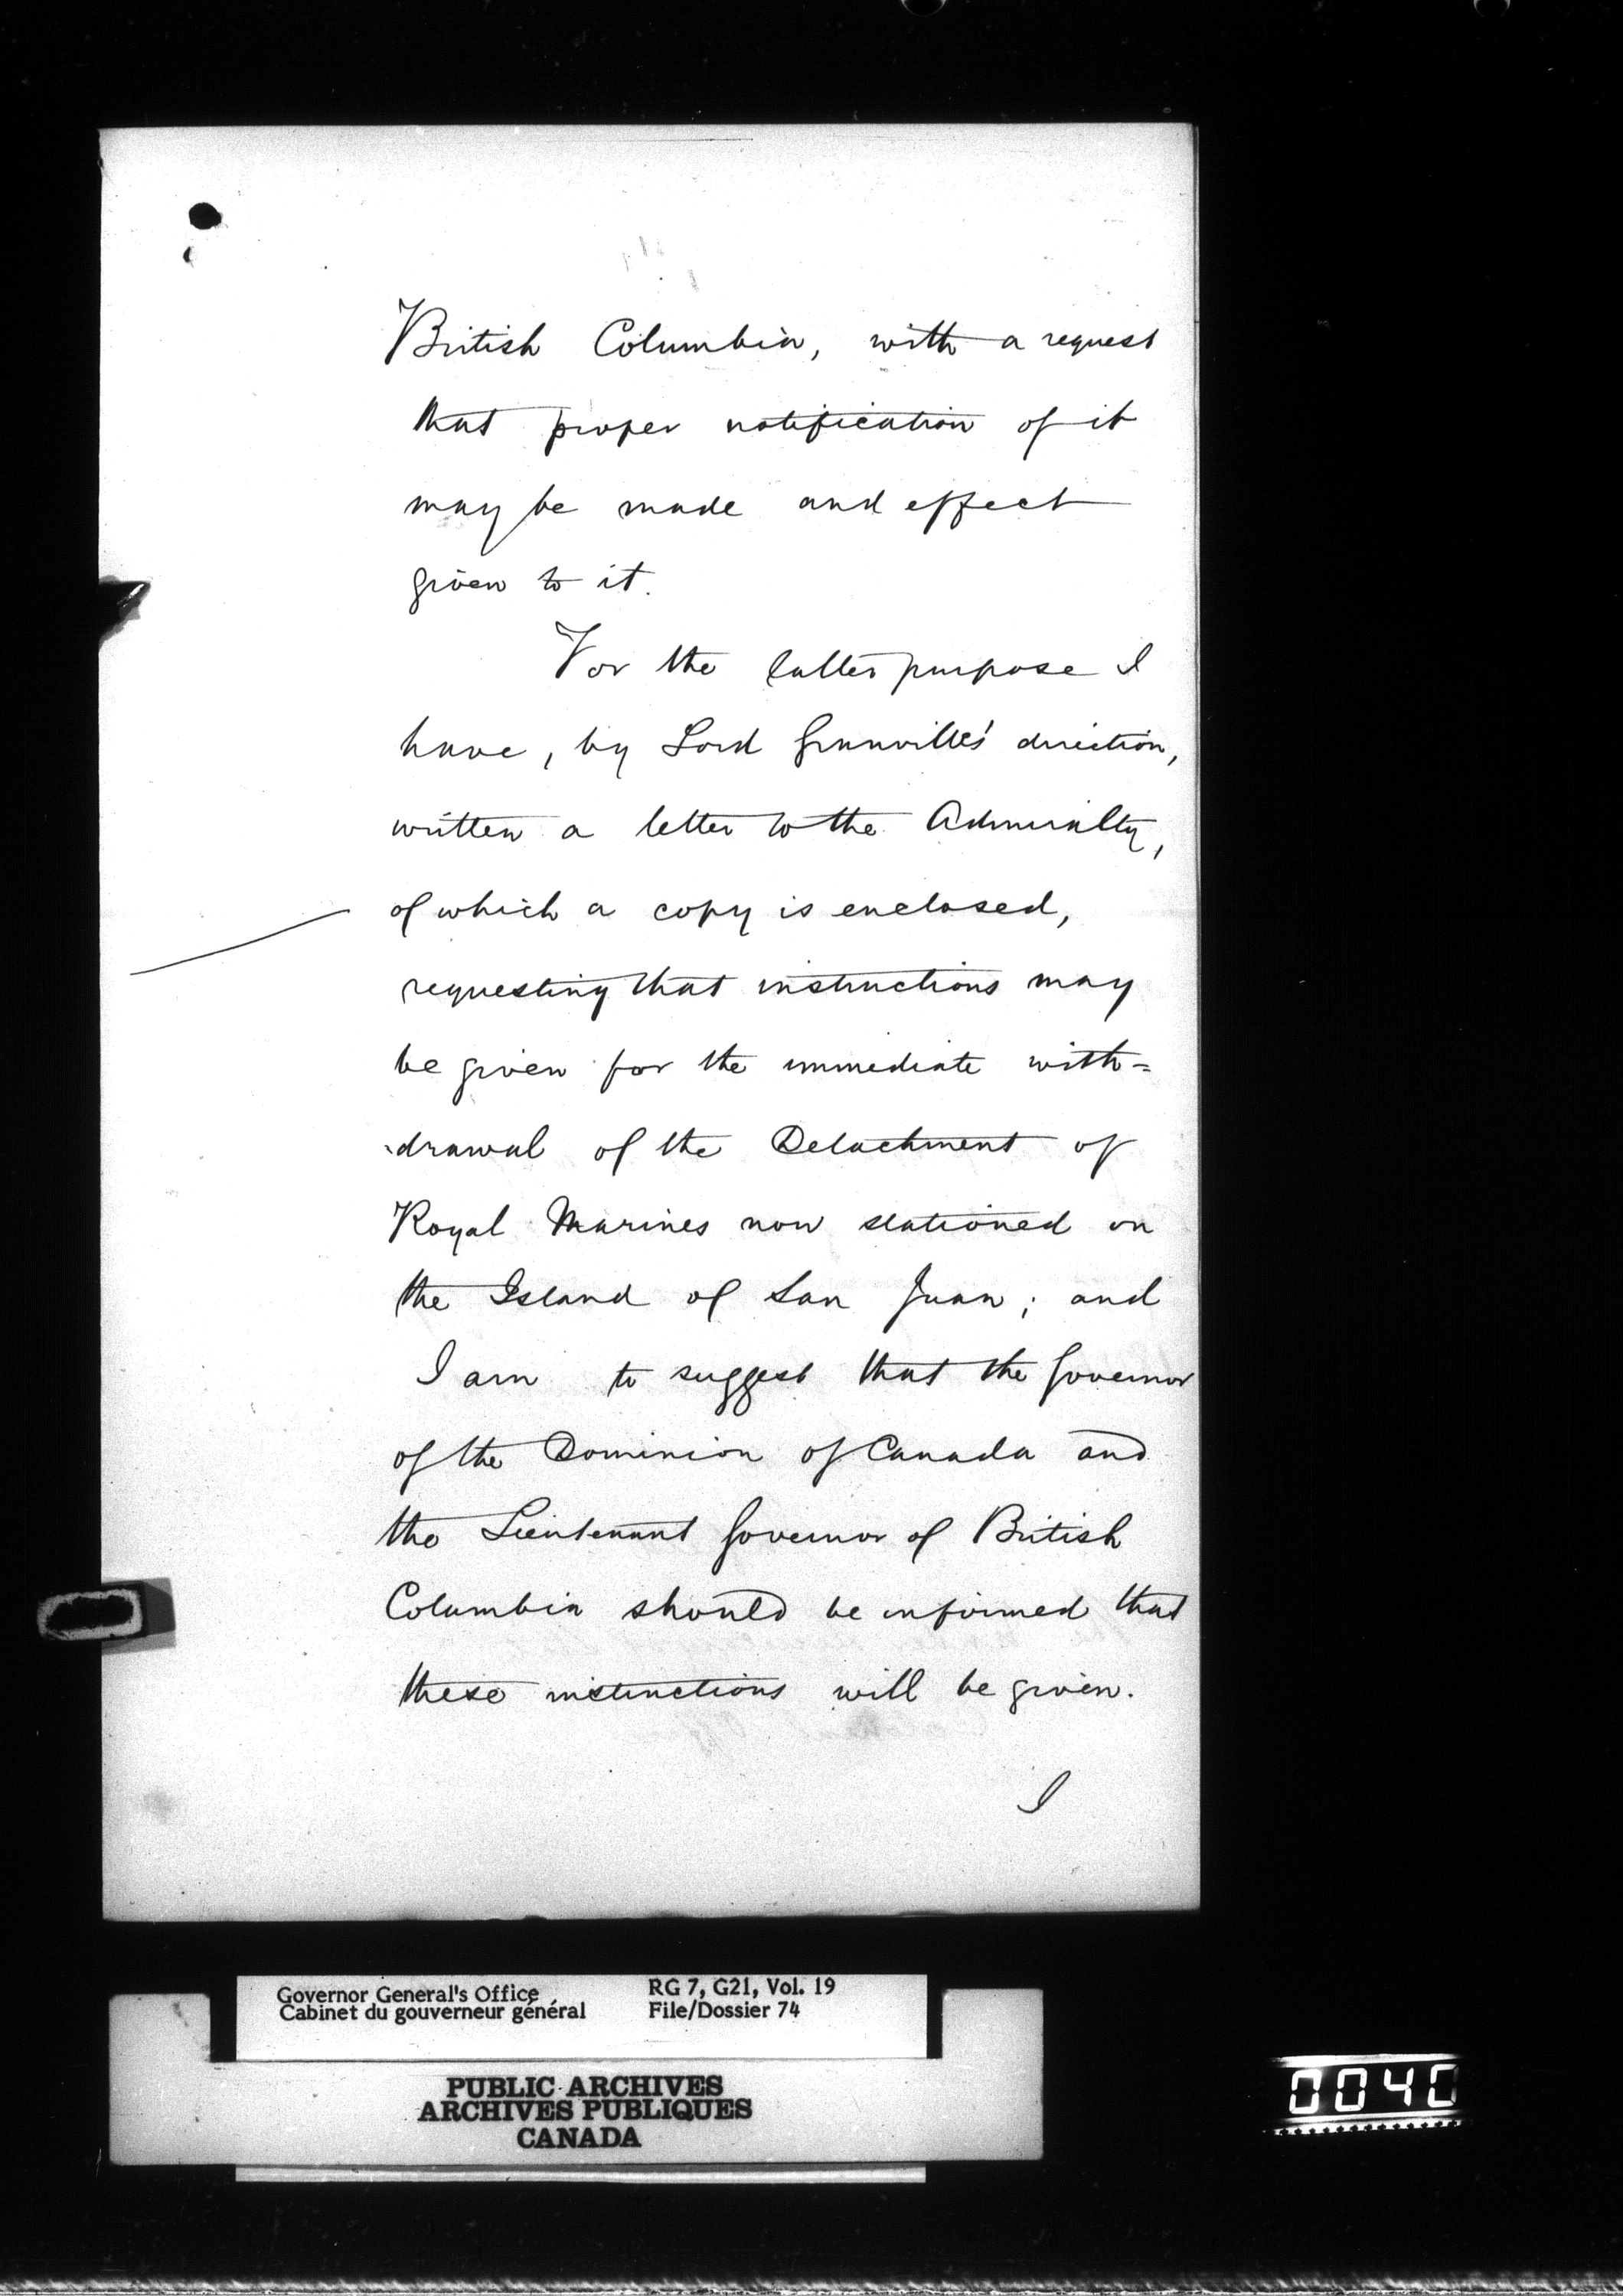 British Columbia, with a request
that proper notification of it
may be made and effect
given to it.
For the latter purpose I
have, by Lord Granville's direction,
written a letter to the Admiralty,
of which a copy is enclosed,
requesting that instructions may
be given for the immediate with=
drawal of the Detachment of
Royal Marines now stationed on
the Island of San Juan; and
I am to suggest that the Governor
of the Dominion of Canada and
the Lieutenant Governor of British
Columbia should be informed that
these instructions will be given.
I
Governor General's Office RG 7, G21, Vol. 19
Cabinet du gouverneur général File/Dossier 74
PUBLIC ARCHIVES
ARCHIVES PUBLIQUES
CANADA
0040